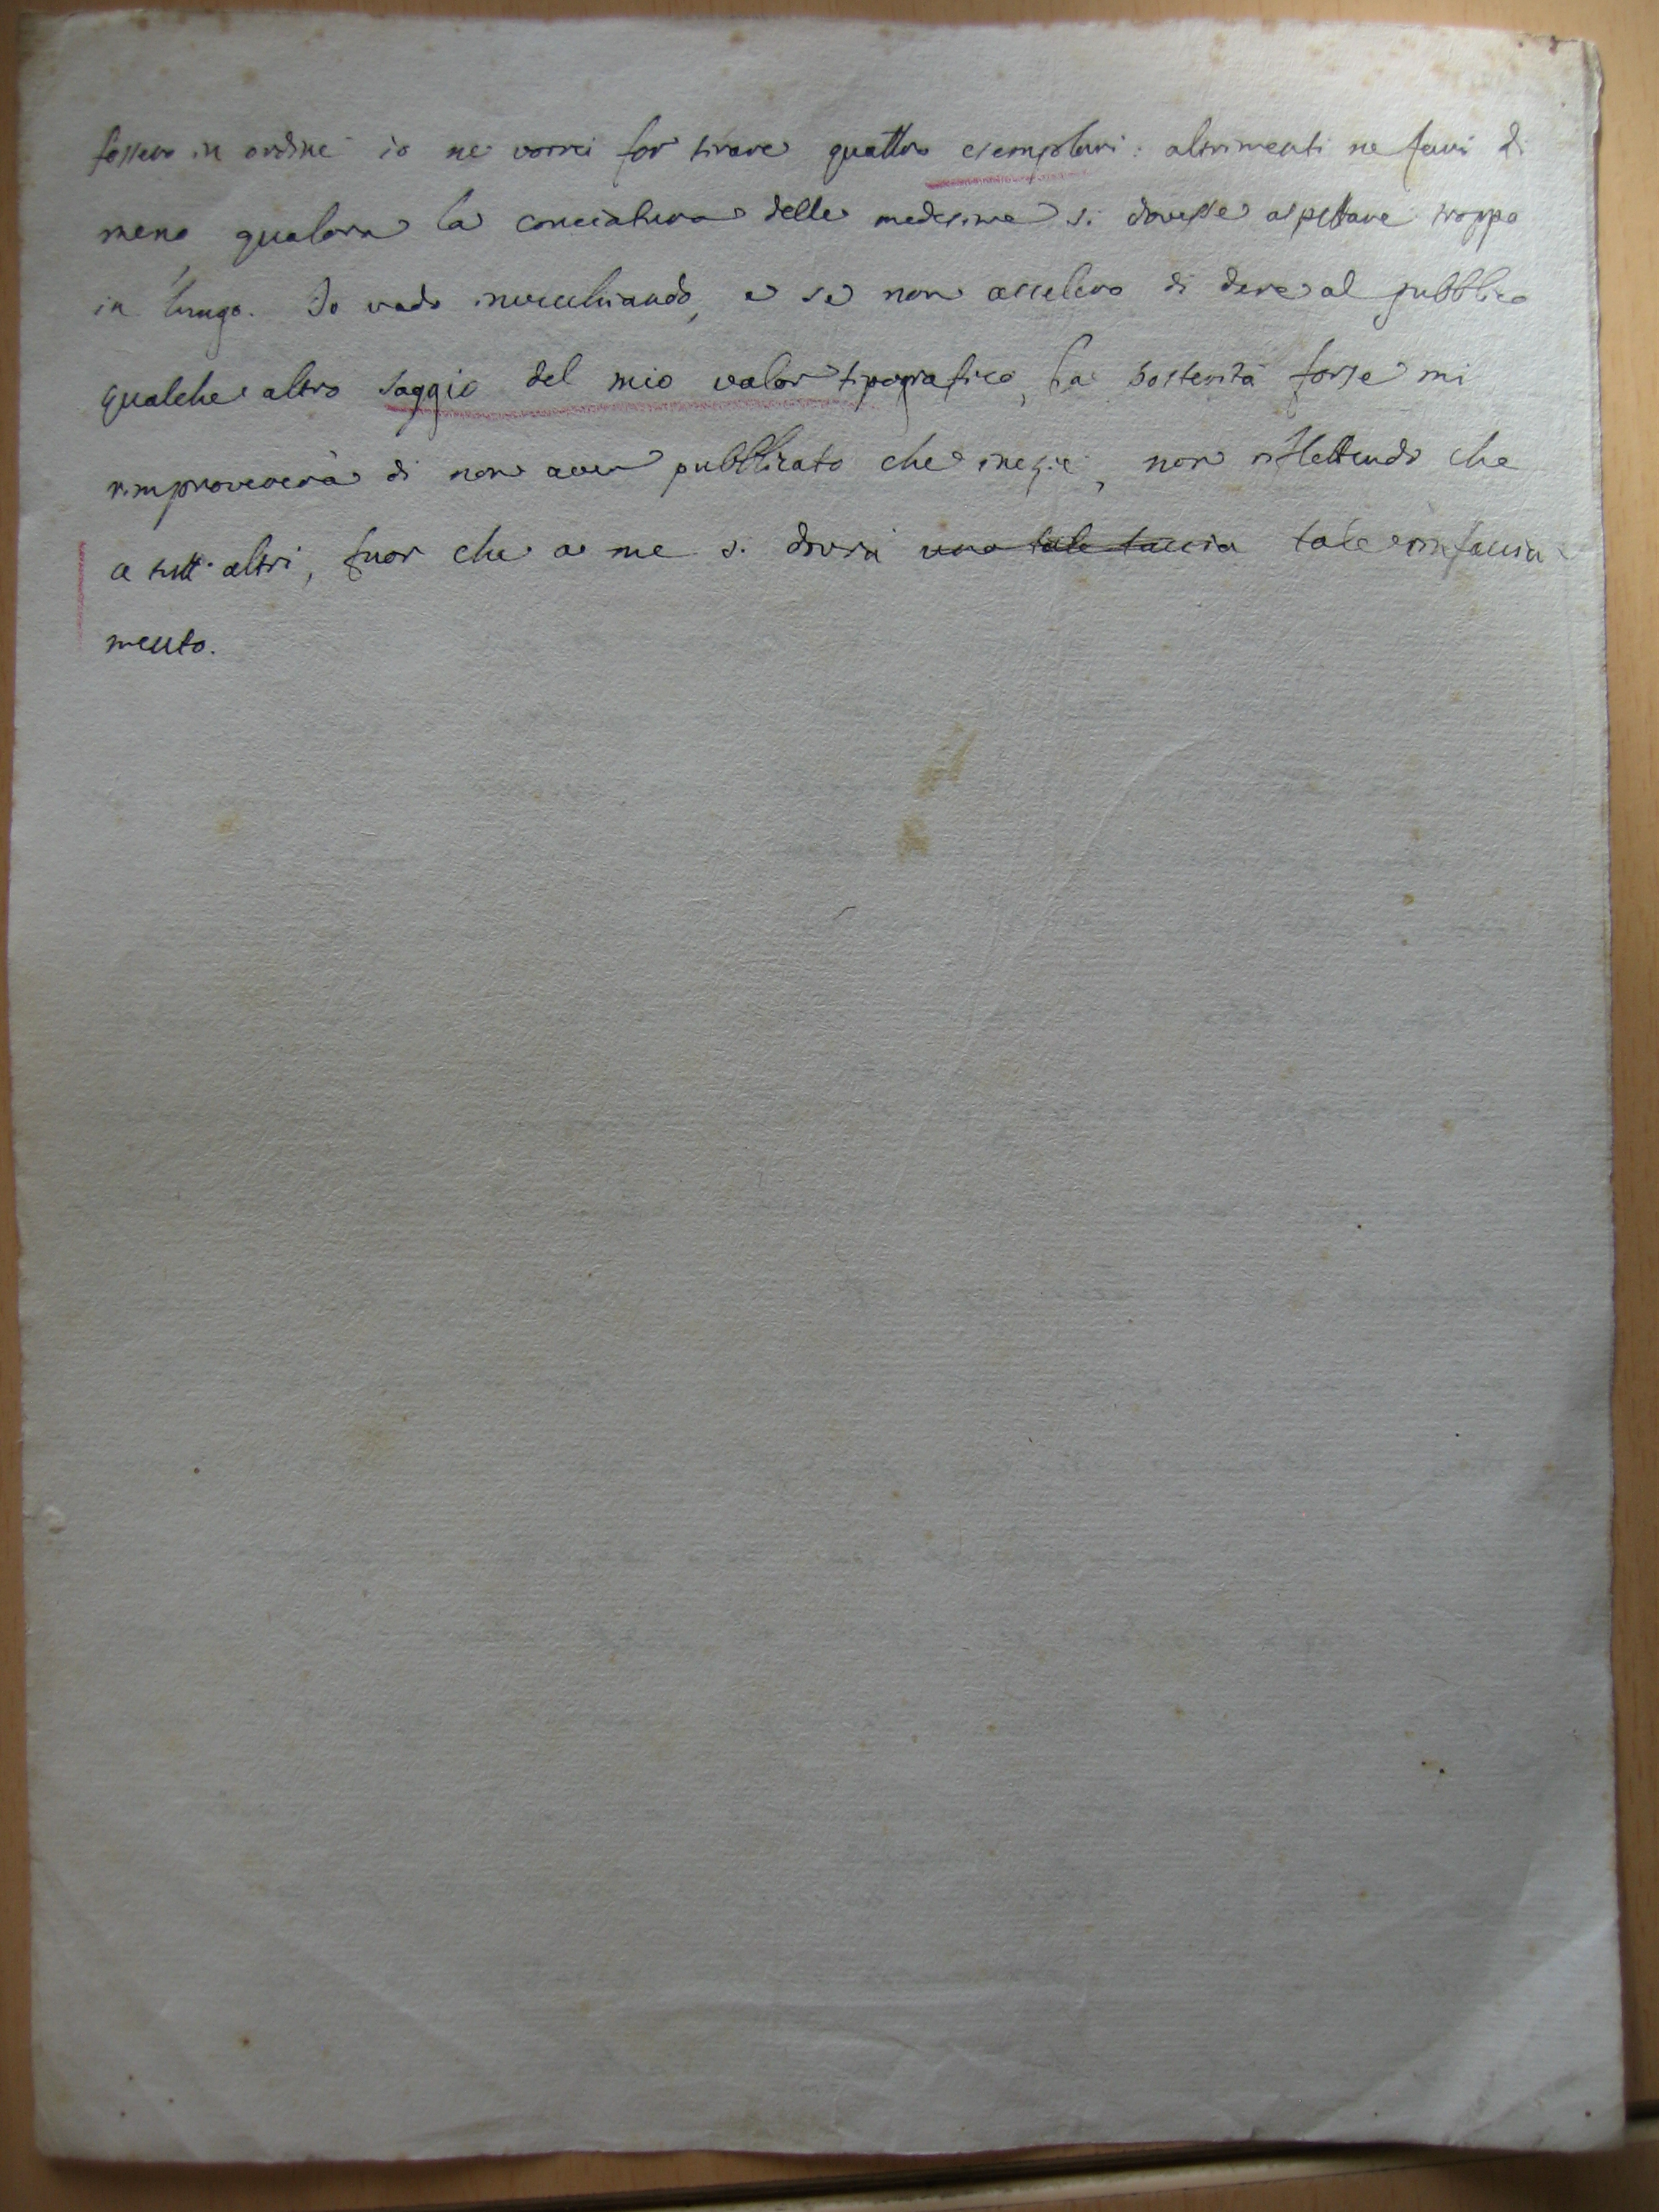 fossero in ordine io ne vorrei far tirare quattro esemplari: altrimenti ne farei di
meno qualora la conciatura delle medesime si dovesse aspettare troppo
in lungo. Io vado invecchiando, e se non accelero di dare al pubblico
qualche altro saggio del mio valor tipografico, la posterità forse mi
rimprovererà di non aver pubblicato che inezie, non riflettendo che
a tutt'altri, fuor che a me si dovrà una tale taccia tale rinfaccia-
mento.